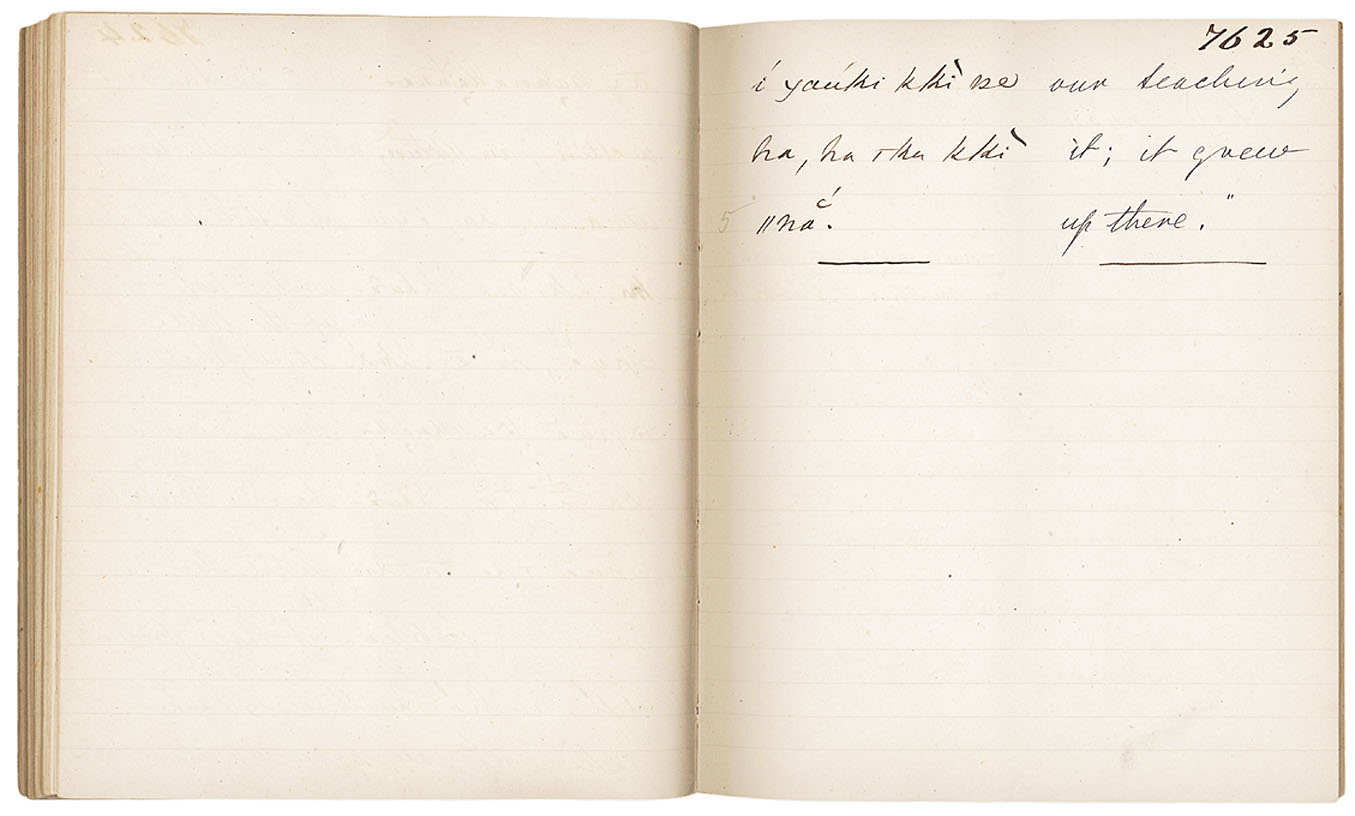 7625
í yaúki kkì se our teaching
ha, ha ı ka kkì it; it grew
5 ǁná̆. up there."